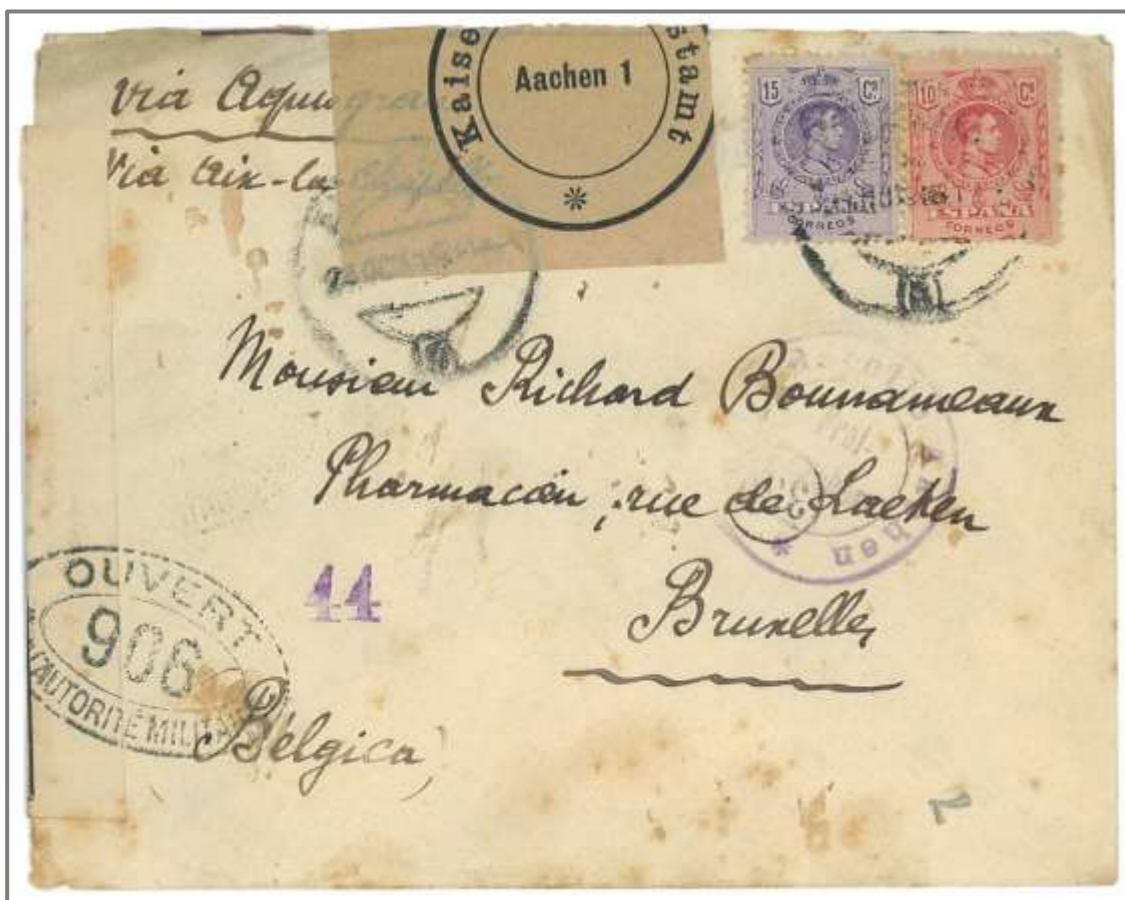 via Aqui
Via Aix-la-
Kaise stamt
Aachen 1
15 Cs.
ESPAÑA
CORREOS
10 Cs.
ESPAÑA
CORREOS
Monsieur Richard Bonnameaux
Pharmacien, rue de Laeken
Bruxelles
44
OUVERT
906
AUTORITÉ MILITAIRE
Bélgica
2